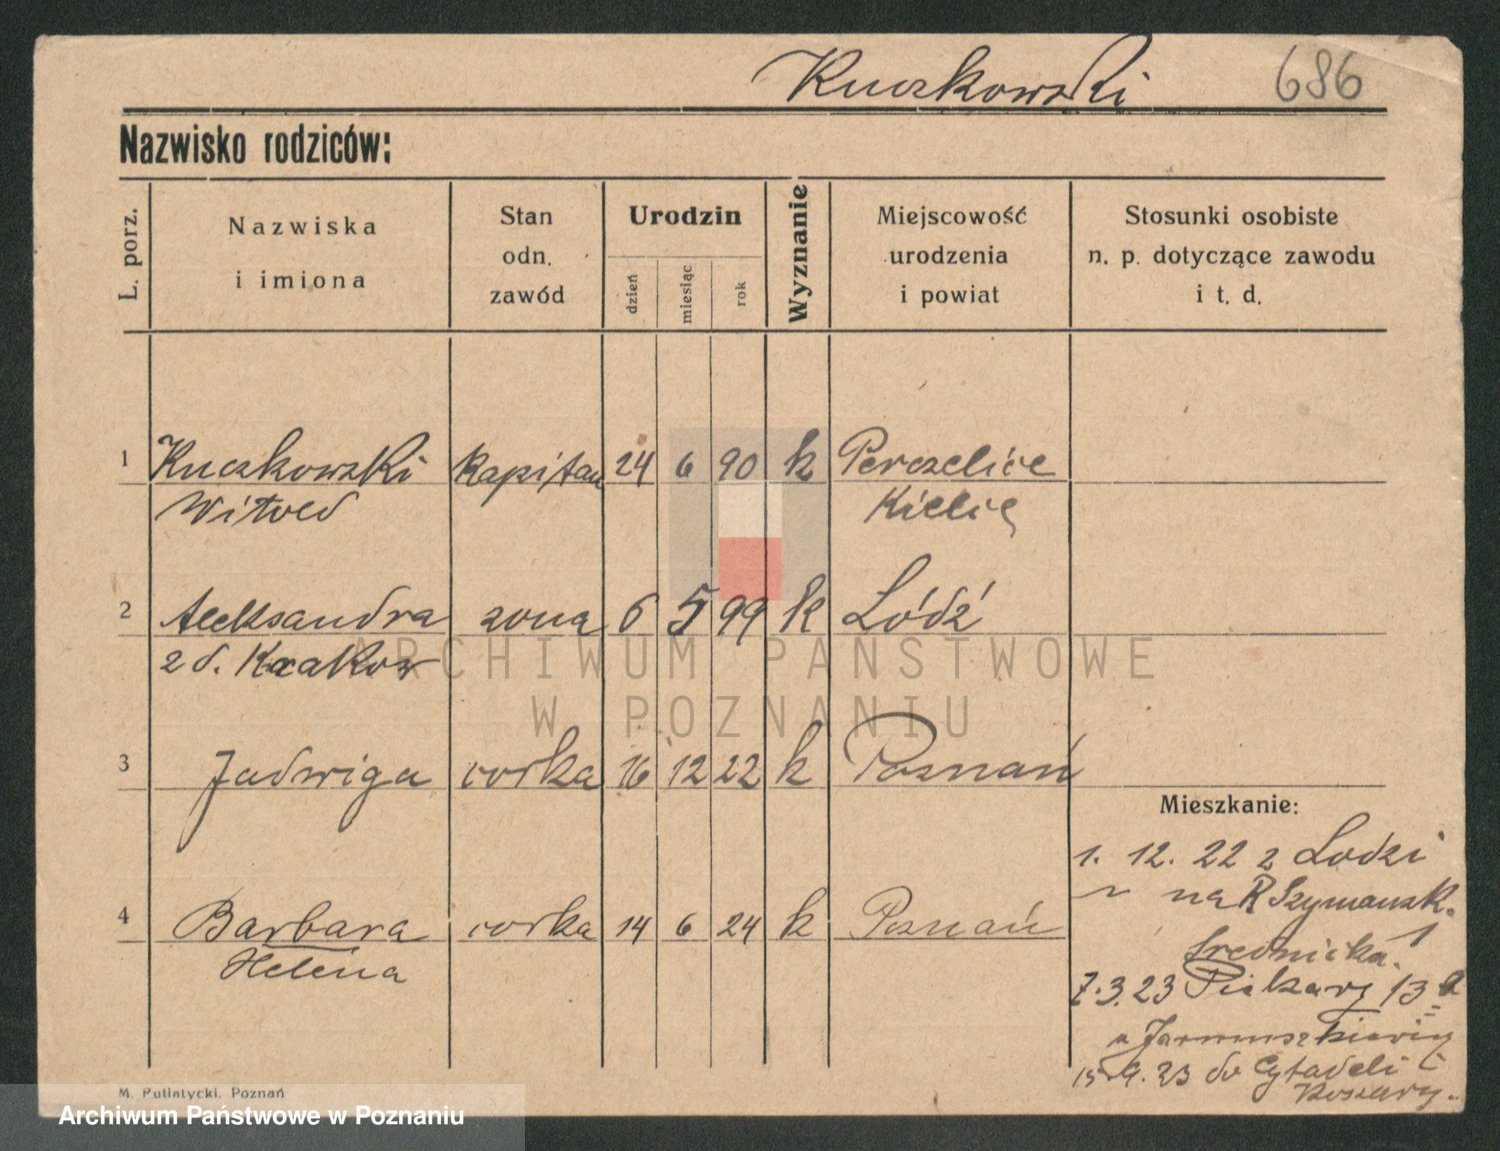 Kuczkowski 686
Nazwisko rodziców:
L. porz.
Nazwiska
i imiona
Stan
odn.
zawód
Urodzin
dzień miesiąc rok
Wyznanie
Miejscowość
urodzenia
i powiat
Stosunki osobiste
n. p. dotyczące zawodu
i t. d.
1 Kuczkowski kapitan 24 6 90 k Perczelice
Witold Kielię
2 Aleksandra zona 6 5 99 k Łódź
z d. Krakow
3 Jadwiga corka 16 12 22 k Poznań
4 Barbara corka 14 6 24 k Poznań
Helena
Mieszkanie:
1. 12. 22 z Lodzi
na R Szymansk.
Srednicka. 1
7.3.23 Piekary 13 a
u Jarnuszkiewicz
15.9.23 do Cytadeli
Koszary.
M. Putiatycki, Poznań
ARCHIWUM PAŃSTWOWE
W POZNANIU
Archiwum Państwowe w Poznaniu